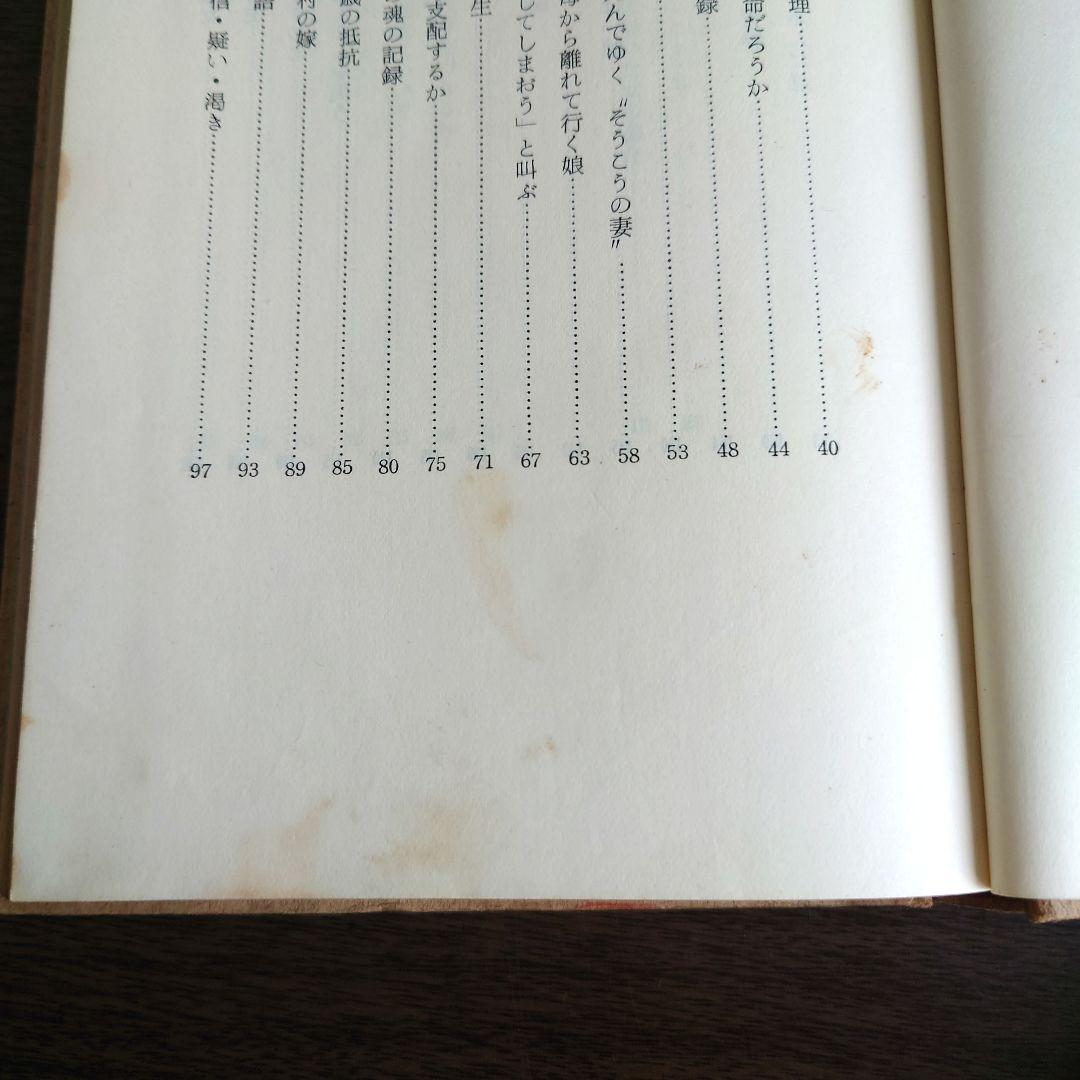 理……40
命だろうか……44
録……48
……53
んでゆく〝そうこうの妻〟……58
から離れて行く娘……63
してしまおう」と叫ぶ……67
生……71
支配するか……75
魂の記録……80
歳の抵抗……85
村の嫁……89
……93
・疑い・渇き……97